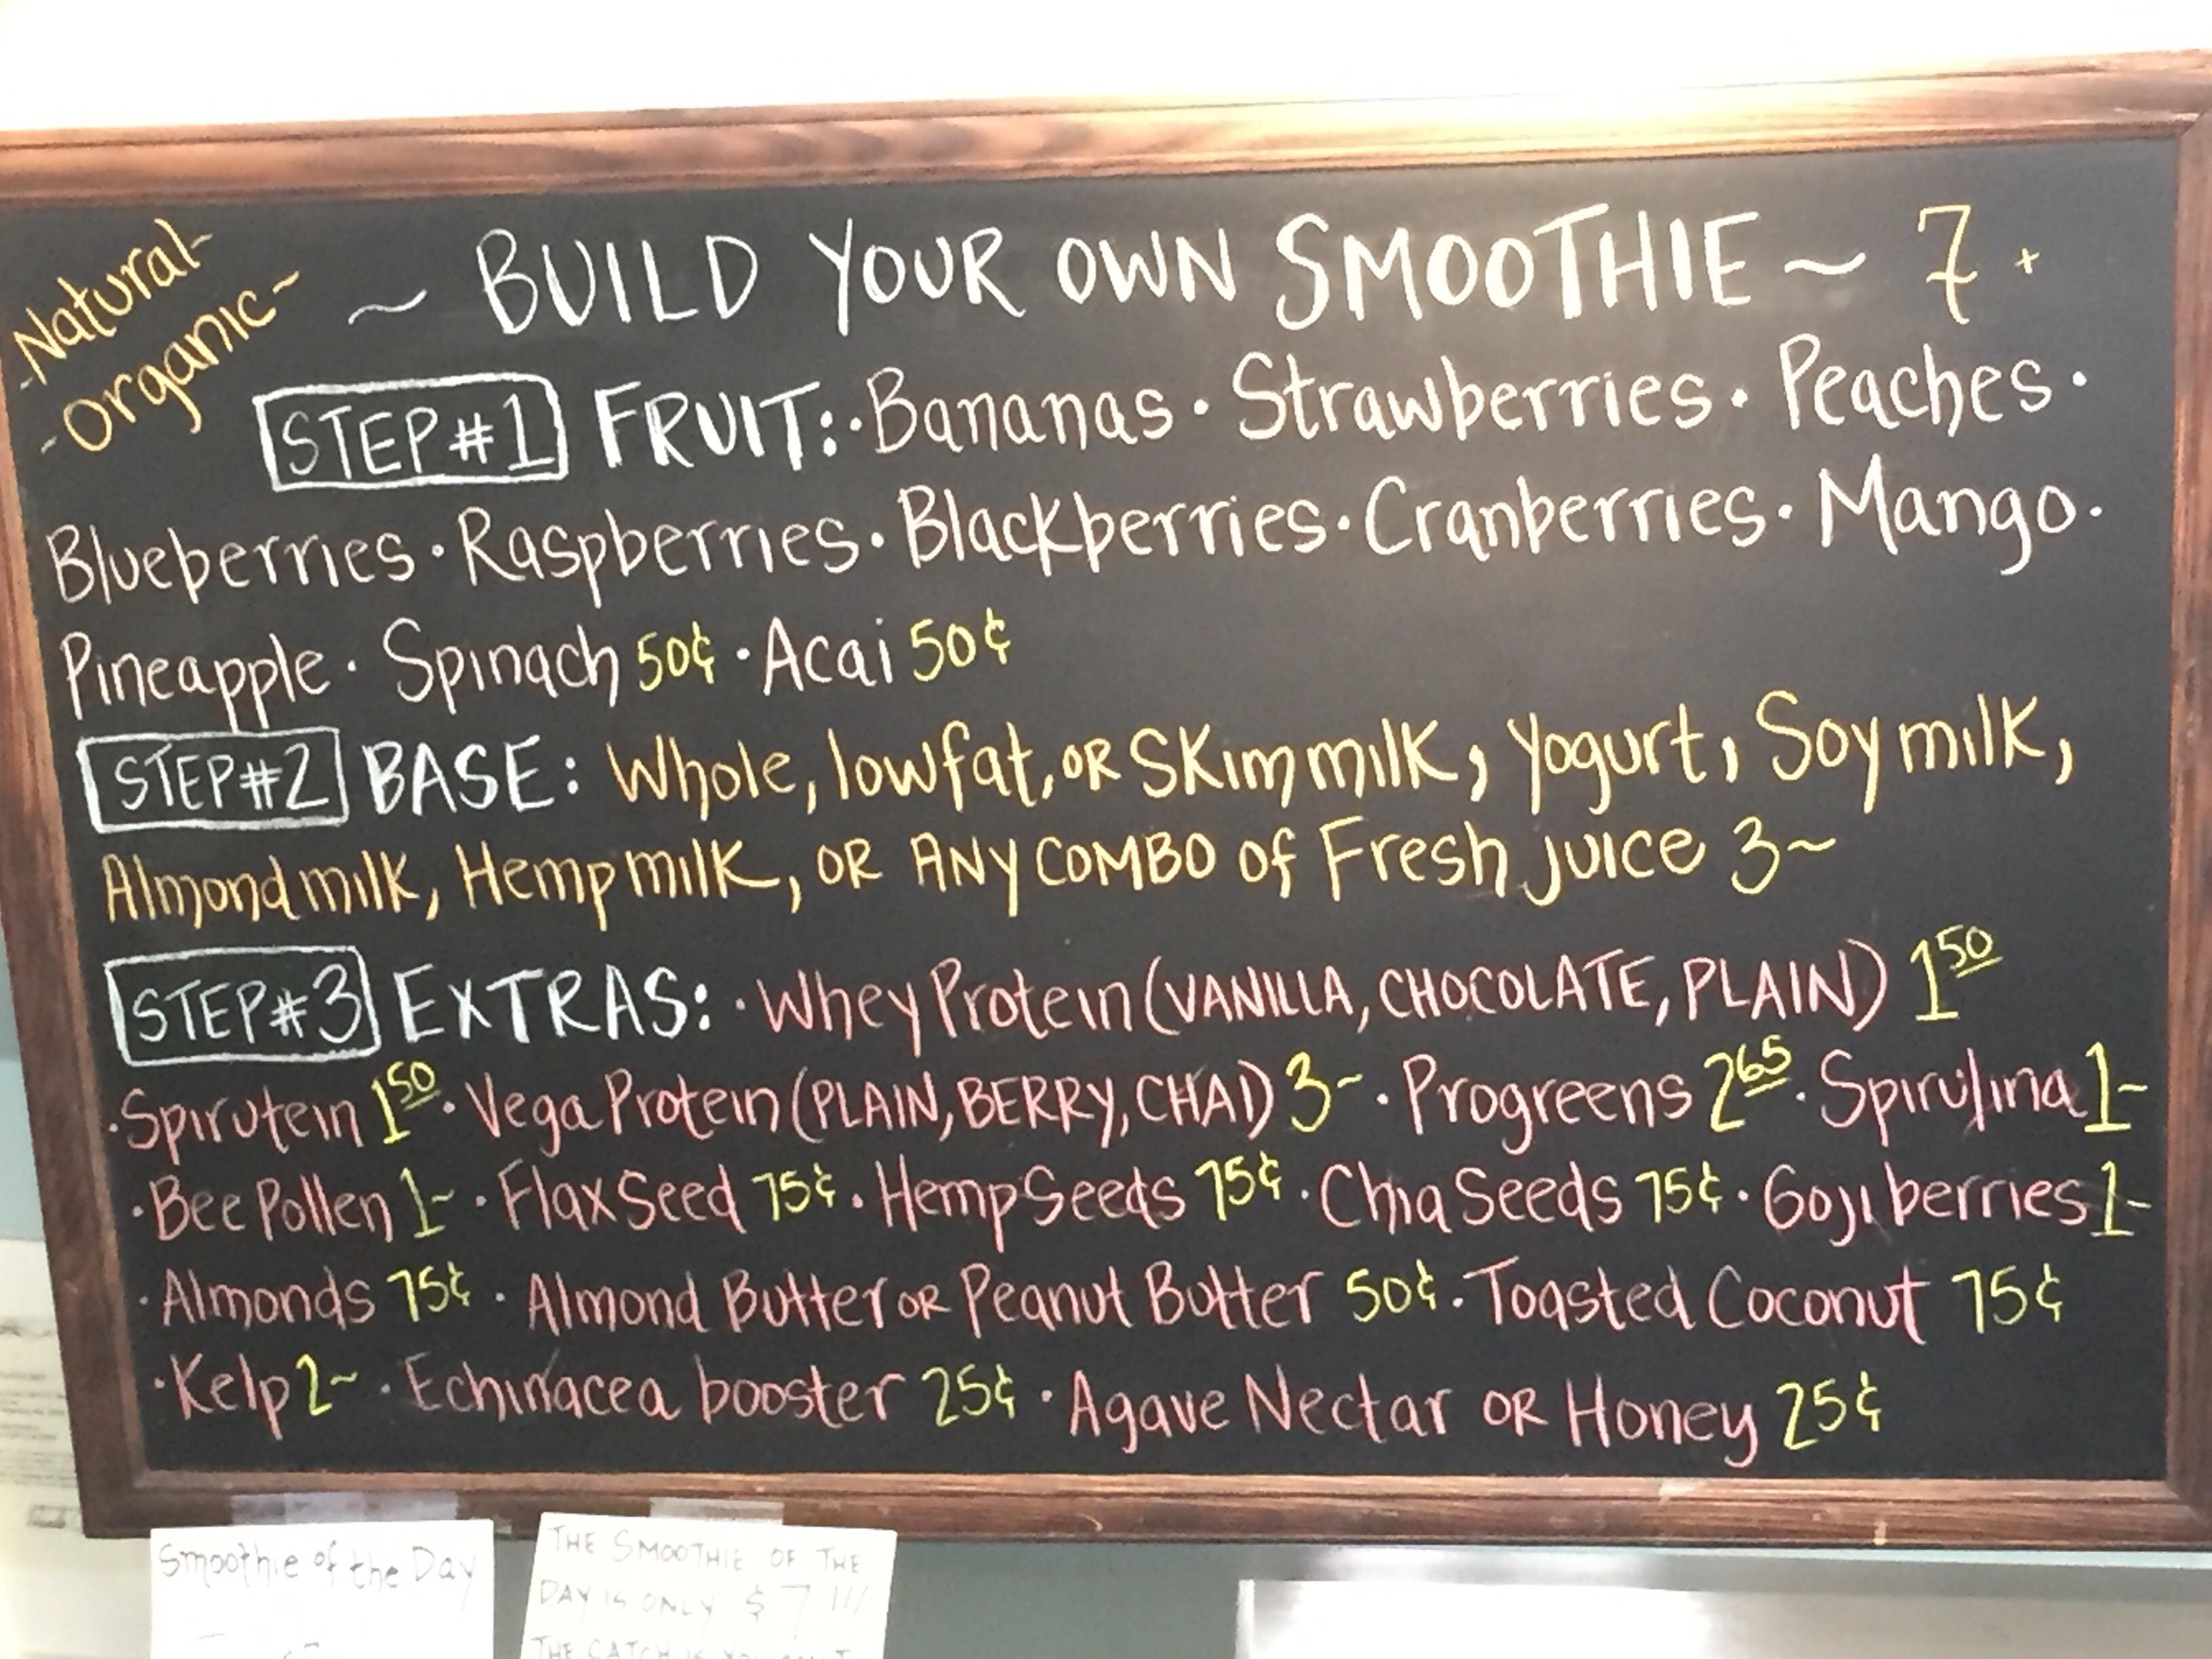 -Natural-
-Organic-
~ BUILD YOUR OWN SMOOTHIE ~ 7+
STEP #1 FRUIT: · Bananas · Strawberries · Peaches ·
Blueberries · Raspberries · Blackberries · Cranberries · Mango ·
Pineapple · Spinach 50¢ · Acai 50¢
STEP #2 BASE: Whole, lowfat, OR Skim milk, Yogurt, Soy milk,
Almond milk, Hemp milk, OR ANY COMBO of Fresh juice 3~
STEP #3 EXTRAS: · Whey Protein (VANILLA, CHOCOLATE, PLAIN) 1 50
· Spirutein 1 50 · Vega Protein (PLAIN, BERRY, CHAI) 3~ · Progreens 2 65 · Spirulina 1-
· Bee Pollen 1~ · Flax Seed 75¢ · Hemp Seeds 75¢ · Chia Seeds 75¢ · Goji berries 1-
· Almonds 75¢ · Almond Butter OR Peanut Butter 50¢ · Toasted Coconut 75¢
· Kelp 2~ · Echinacea booster 25¢ · Agave Nectar OR Honey 25¢
Smoothie of the Day
THE SMOOTHIE OF THE
DAY IS ONLY $7!!!
THE CATCH IS YOU